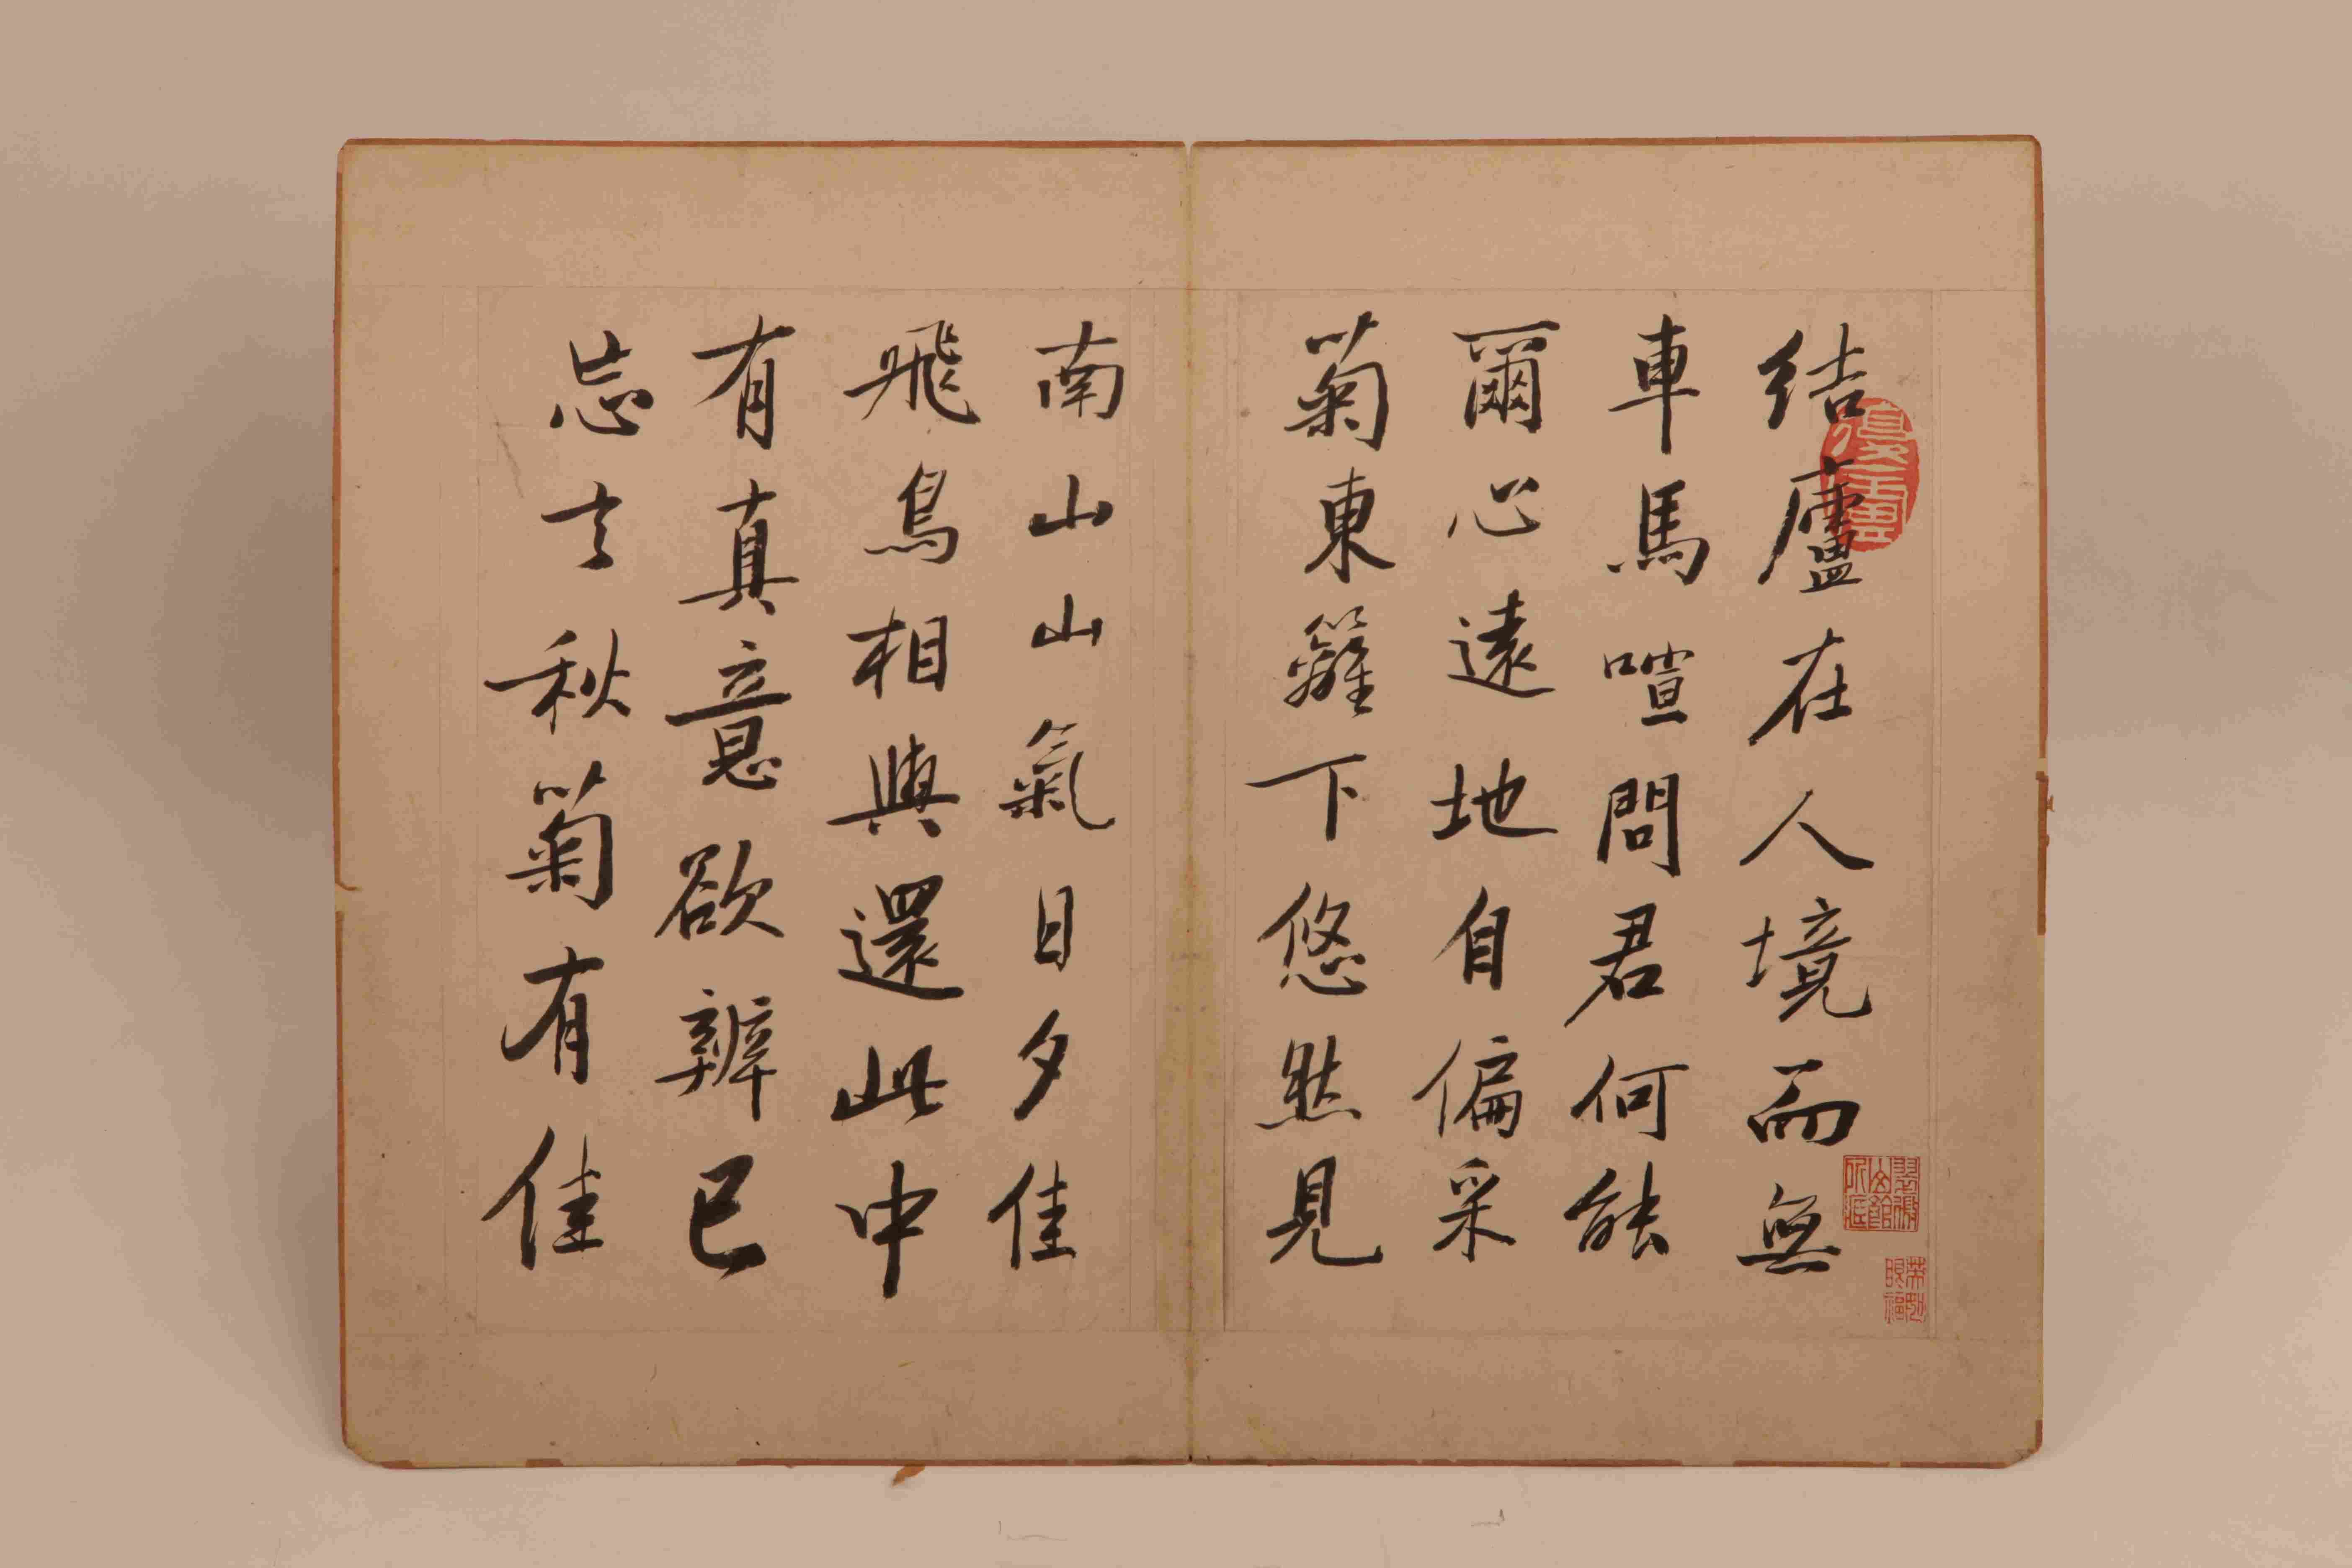 结廬在人境而無
車馬喧問君何能
爾心遠地自偏采
菊東籬下悠然見
南山山氣日夕佳
飛鳥相與還此中
有真意欲辨已
忘言秋菊有佳